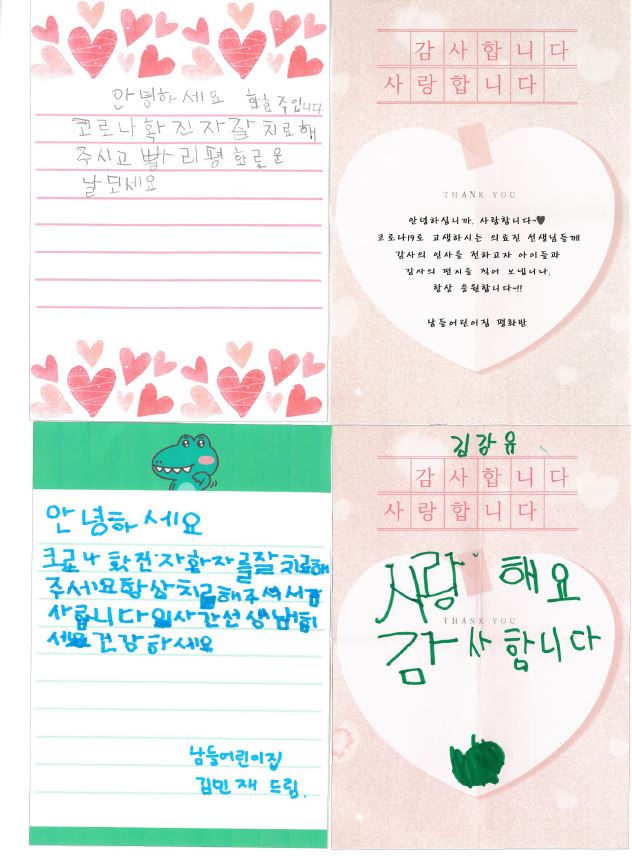 안녕하세요
코로나확진자잘치료해
주시고빨리평화로운
날되세요
감사합니다
사랑합니다
THANK YOU
안녕하십니까. 사랑합니다~♥
코로나19로 고생하시는 의료진 선생님들께
감사의 인사를 전하고자 아이들과
감사의 편지를 적어 보냅니다.
항상 응원합니다~!!
남들어린이집 평화반
안녕하세요
코로나 확진자환자를잘치료해
주세요항상치료해주셔서감
사합니다
세요건강하세요
남들어린이집
김민재 드림.
김강유
감사합니다
사랑합니다
THANK YOU
사랑해요
감사합니다